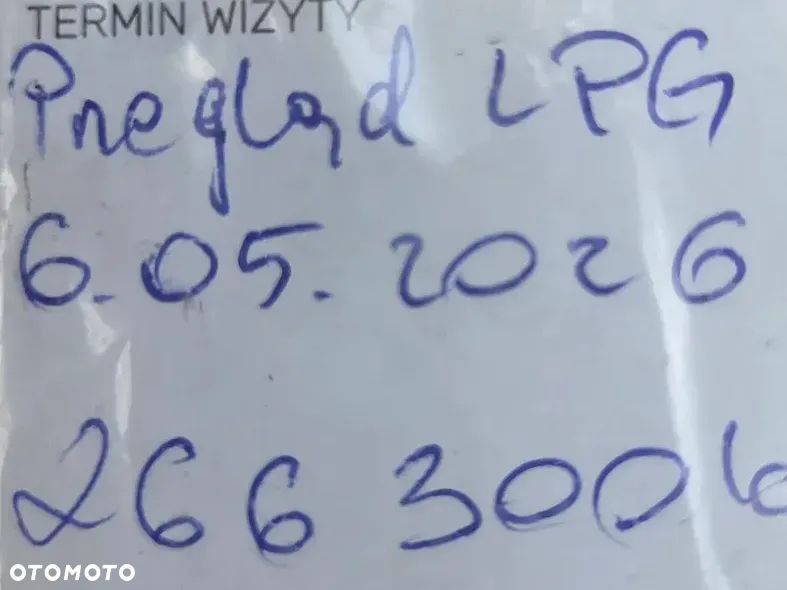 TERMIN WIZYTY
Przegląd LPG
6.05.2026
266 300
OTOMOTO